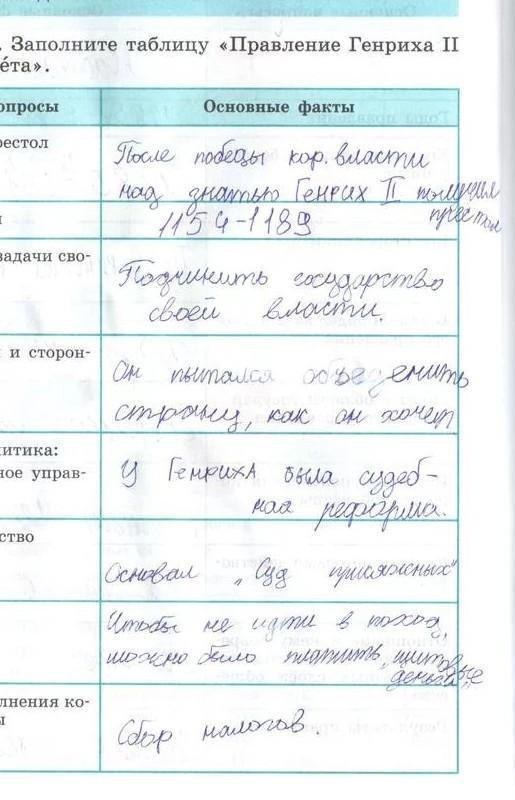 . Заполните таблицу «Правление Генриха II
ета».
опросы
Основные факты
рестол
После победы кор. власти
над знатью Генрих II получил
престол
1154-1189
задачи сво-
Подчинить государство
своей власти.
и сторон-
Он пытался объеденить
страну, как он хочет
итика:
ное управ-
У Генриха была судеб-
ная реформа.
ство
Основал „Суд присяжных"
Чтобы не идти в поход,
можно было платить „щитовые
деньги"
лнения ко-
ы
Сбор налогов.